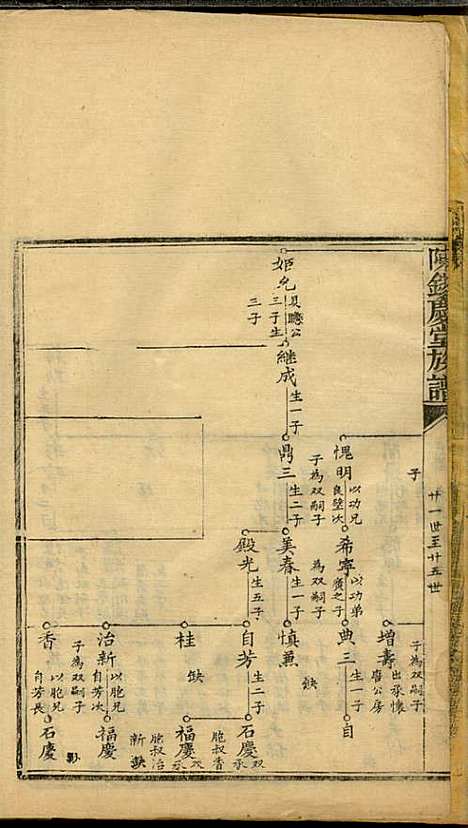 陳錫慶堂族譜
廿一世至廿五世
子
愧明
以功兄
良壁次
子為双嗣子
希寧
以功弟
廣之子
為双嗣子
增壽
出承懷
廣公房
子為双嗣子
典三
生一子
自
缺
姬允
三子生
三子
继成
生一子
鼎三
生二子
美春
生一子
慎兼
殿光
生五子
自芳
生二子
石慶
双承
胞叔香
福慶
双承
胞叔治
新缺
桂
缺
治新
福慶
以胞兄
自芳次
子為双嗣子
香
石慶
以胞兄
自芳長
子為双嗣子